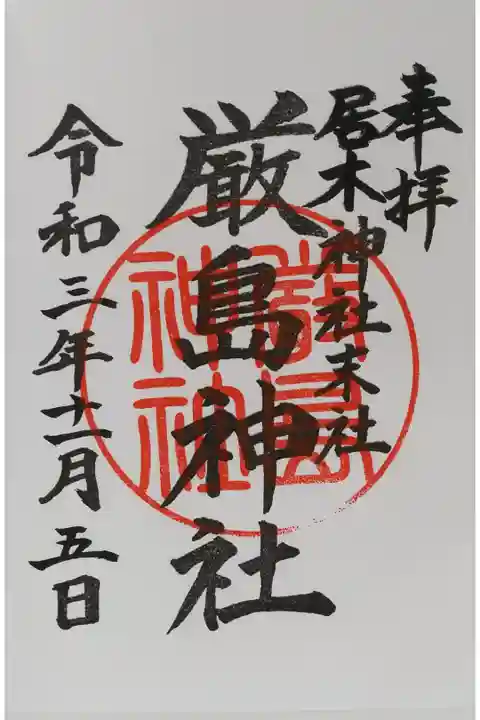 奉拝
居木神社末社
厳島神社
令和三年十一月五日
嚴島
神社